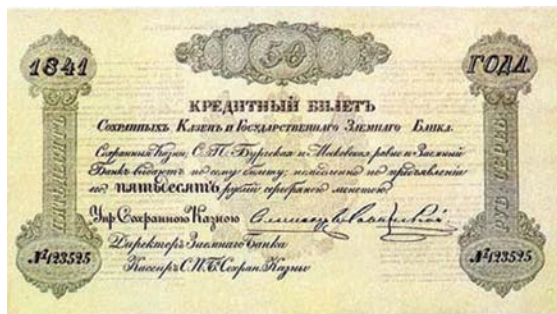 1841
50
ГОДА
КРЕДИТНЫЙ БИЛЕТЪ
Сохранныхъ Казенъ и Государственнаго Заемнаго Банка.
Сохранныя Казны, С.П.Бургская и Московская равно и Заемный
Банкъ выдаютъ по сему билету, немедленно по предъявленіи
его пятьдесятъ рублей серебряною монетою.
Упр. Сохранною Казною
Директоръ Заемнаго Банка
Кассиръ С.П.Б. Сохран. Казны
ПЯТЬДЕСЯТЪ
РУБ. СЕРЕБ.
№ 123525
№ 123525